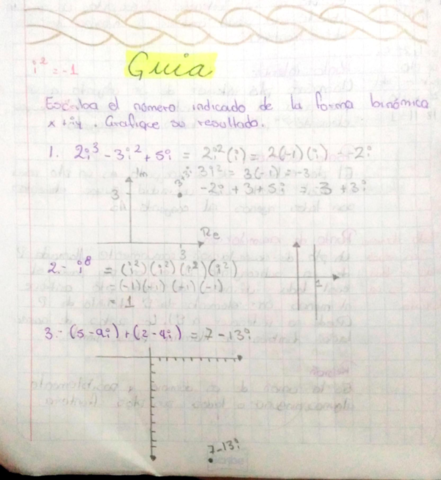 i² = -1
Guia
Escriba el número indicado de la forma binómica
x + iy. Grafique su resultado.
1. 2i³ - 3i² + 5i = 2i²(i) = 2(-1)(i) = -2i
3i² = 3(-1) = -3
-2i + 3 + 5i = 3 + 3i
Im
3
3+3i
Re
3
2.- i⁸ = (i²)(i²)(i²)(i²)
= (-1)(-1)(-1)(-1)
= 1
1
3.- (5-9i) + (2-4i) = 7-13i
7-13i